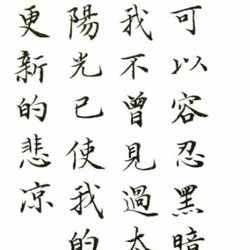 可以容忍黑暗
我不曾見過太
陽光已使我的
更新的悲凉